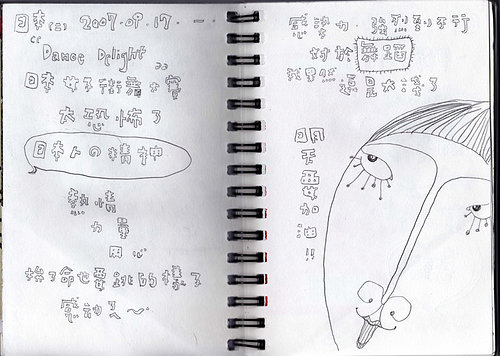 日本(三) 2007.09.17. 一
"Dance Delight"
日本女子街舞大賽
太恐怖了
日本人の精神
熱情
力量
用心
拚了命也要跳的樣子
感動ㄟ~
感染力.強烈到不行
對於舞蹈
我果然還是太淺了
明
天
要
加
油
!!